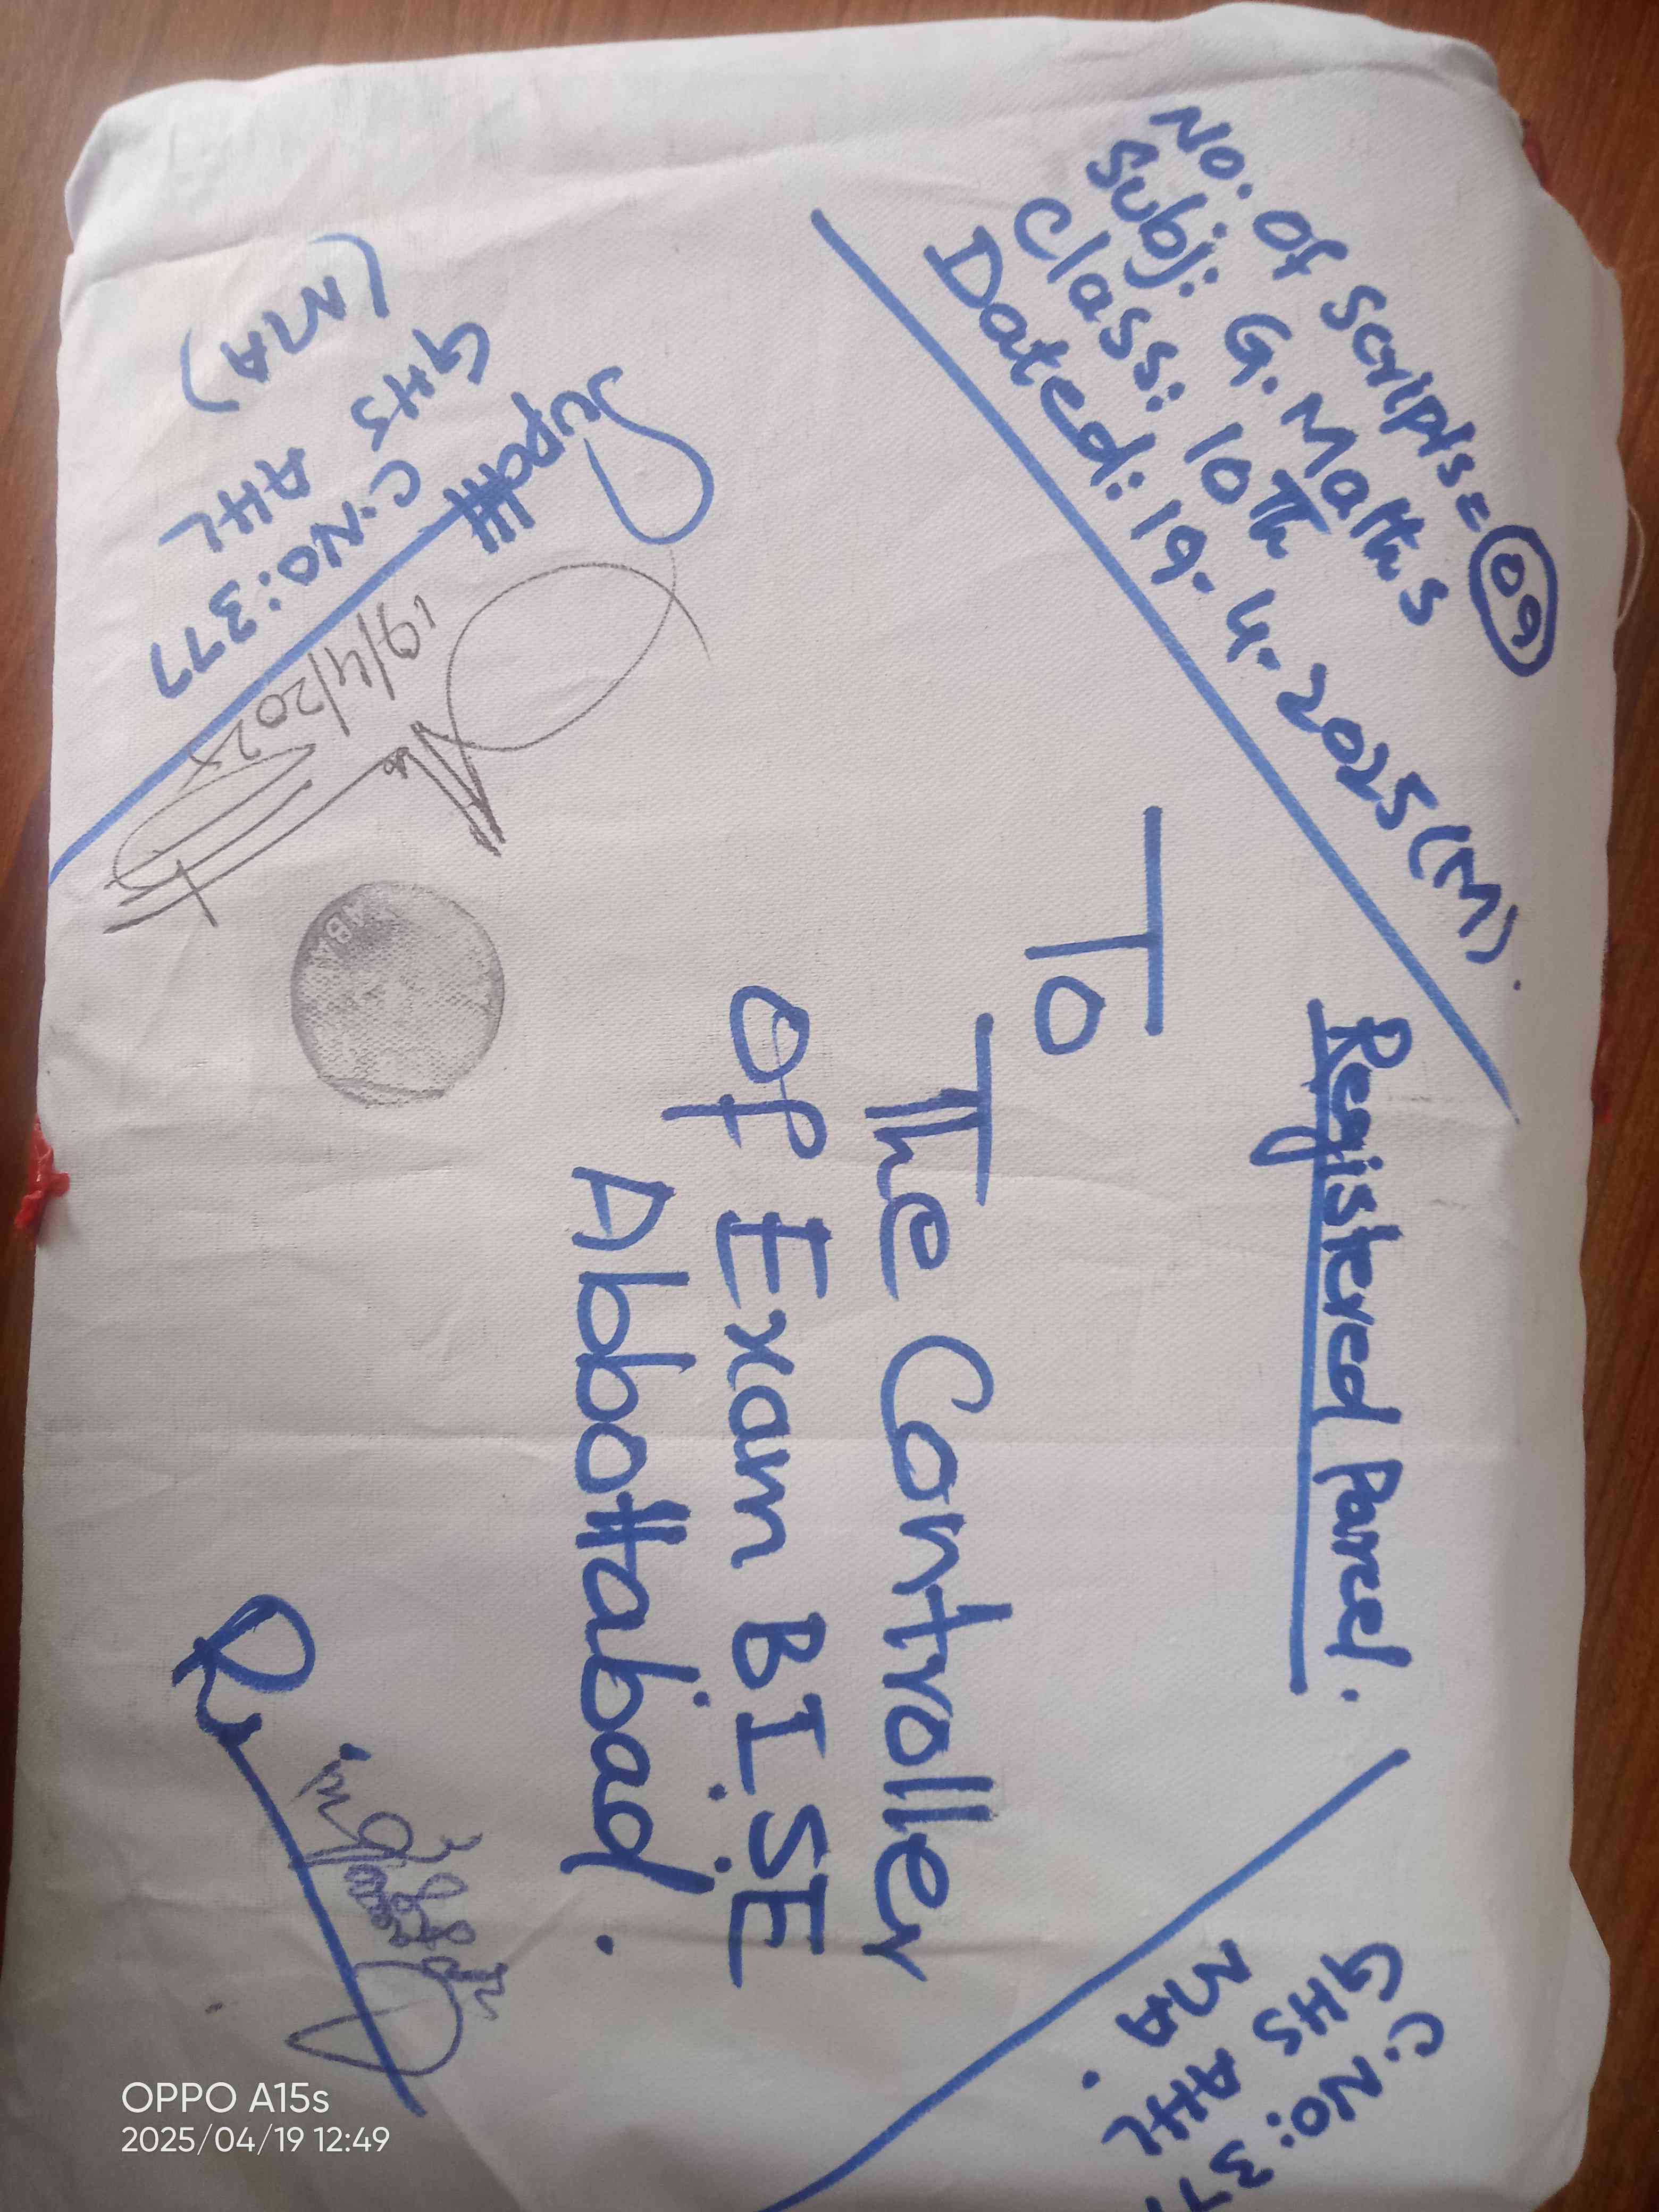 No. of scripts = 09
Subj: G. Maths
Class: 10th
Dated: 19-4-2025 (M)
Registered Parcel.
C.No: 377
GHS AHL
MA.
To
The Controller
of Exam B.I.S.E
Abbottabad.
Supdtt
GHS C.No: 377
AHL
(MA)
19/4/2025
OPPO A15s
2025/04/19 12:49